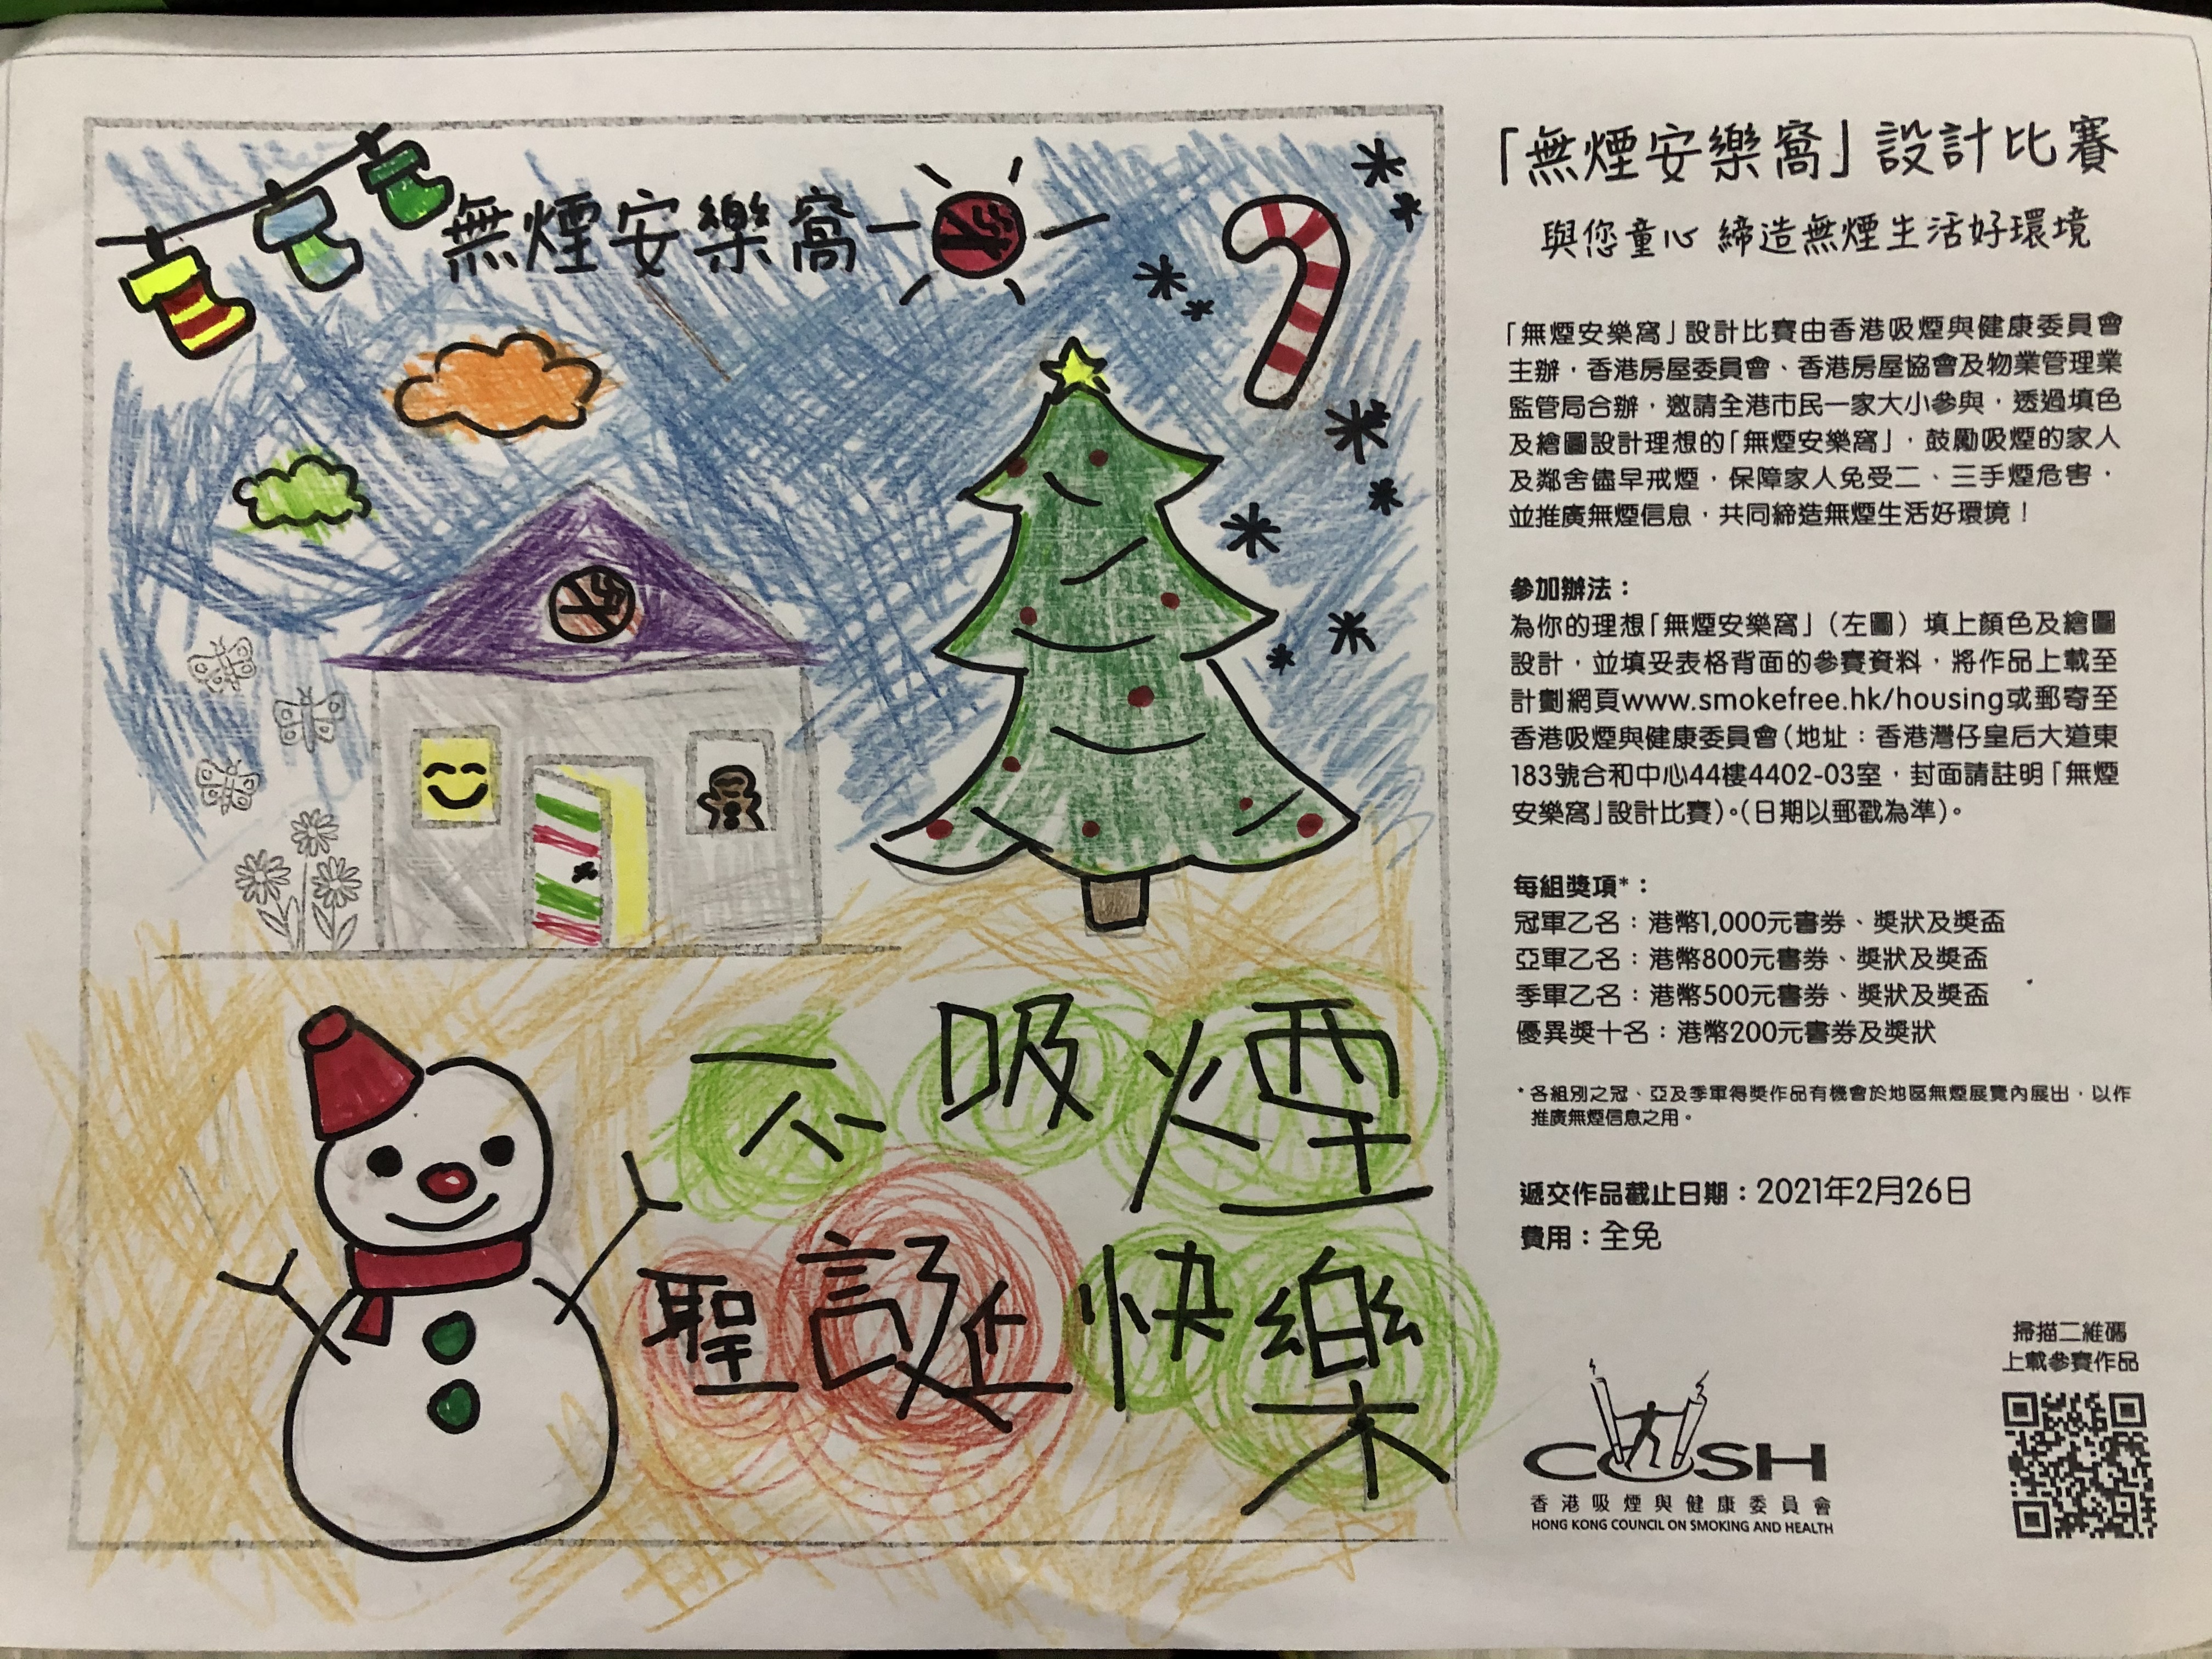 無煙安樂窩
不吸煙
聖誕快樂
「無煙安樂窩」設計比賽
與您童心 締造無煙生活好環境
「無煙安樂窩」設計比賽由香港吸煙與健康委員會
主辦，香港房屋委員會、香港房屋協會及物業管理業
監管局合辦，邀請全港市民一家大小參與，透過填色
及繪圖設計理想的「無煙安樂窩」，鼓勵吸煙的家人
及鄰舍儘早戒煙，保障家人免受二、三手煙危害，
並推廣無煙信息，共同締造無煙生活好環境！
參加辦法：
為你的理想「無煙安樂窩」（左圖）填上顏色及繪圖
設計，並填妥表格背面的參賽資料，將作品上載至
計劃網頁www.smokefree.hk/housing或郵寄至
香港吸煙與健康委員會（地址：香港灣仔皇后大道東
183號合和中心44樓4402-03室，封面請註明「無煙
安樂窩」設計比賽）。（日期以郵戳為準）。
每組獎項*：
冠軍乙名：港幣1,000元書券、獎狀及獎盃
亞軍乙名：港幣800元書券、獎狀及獎盃
季軍乙名：港幣500元書券、獎狀及獎盃
優異獎十名：港幣200元書券及獎狀
*各組別之冠、亞及季軍得獎作品有機會於地區無煙展覽內展出，以作
推廣無煙信息之用。
遞交作品截止日期：2021年2月26日
費用：全免
掃描二維碼
上載參賽作品
COSH
香港吸煙與健康委員會
HONG KONG COUNCIL ON SMOKING AND HEALTH